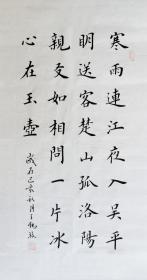 寒雨連江夜入吴平
明送客楚山孤洛陽
親友如相問一片冰
心在玉壺
歲在己亥秋月